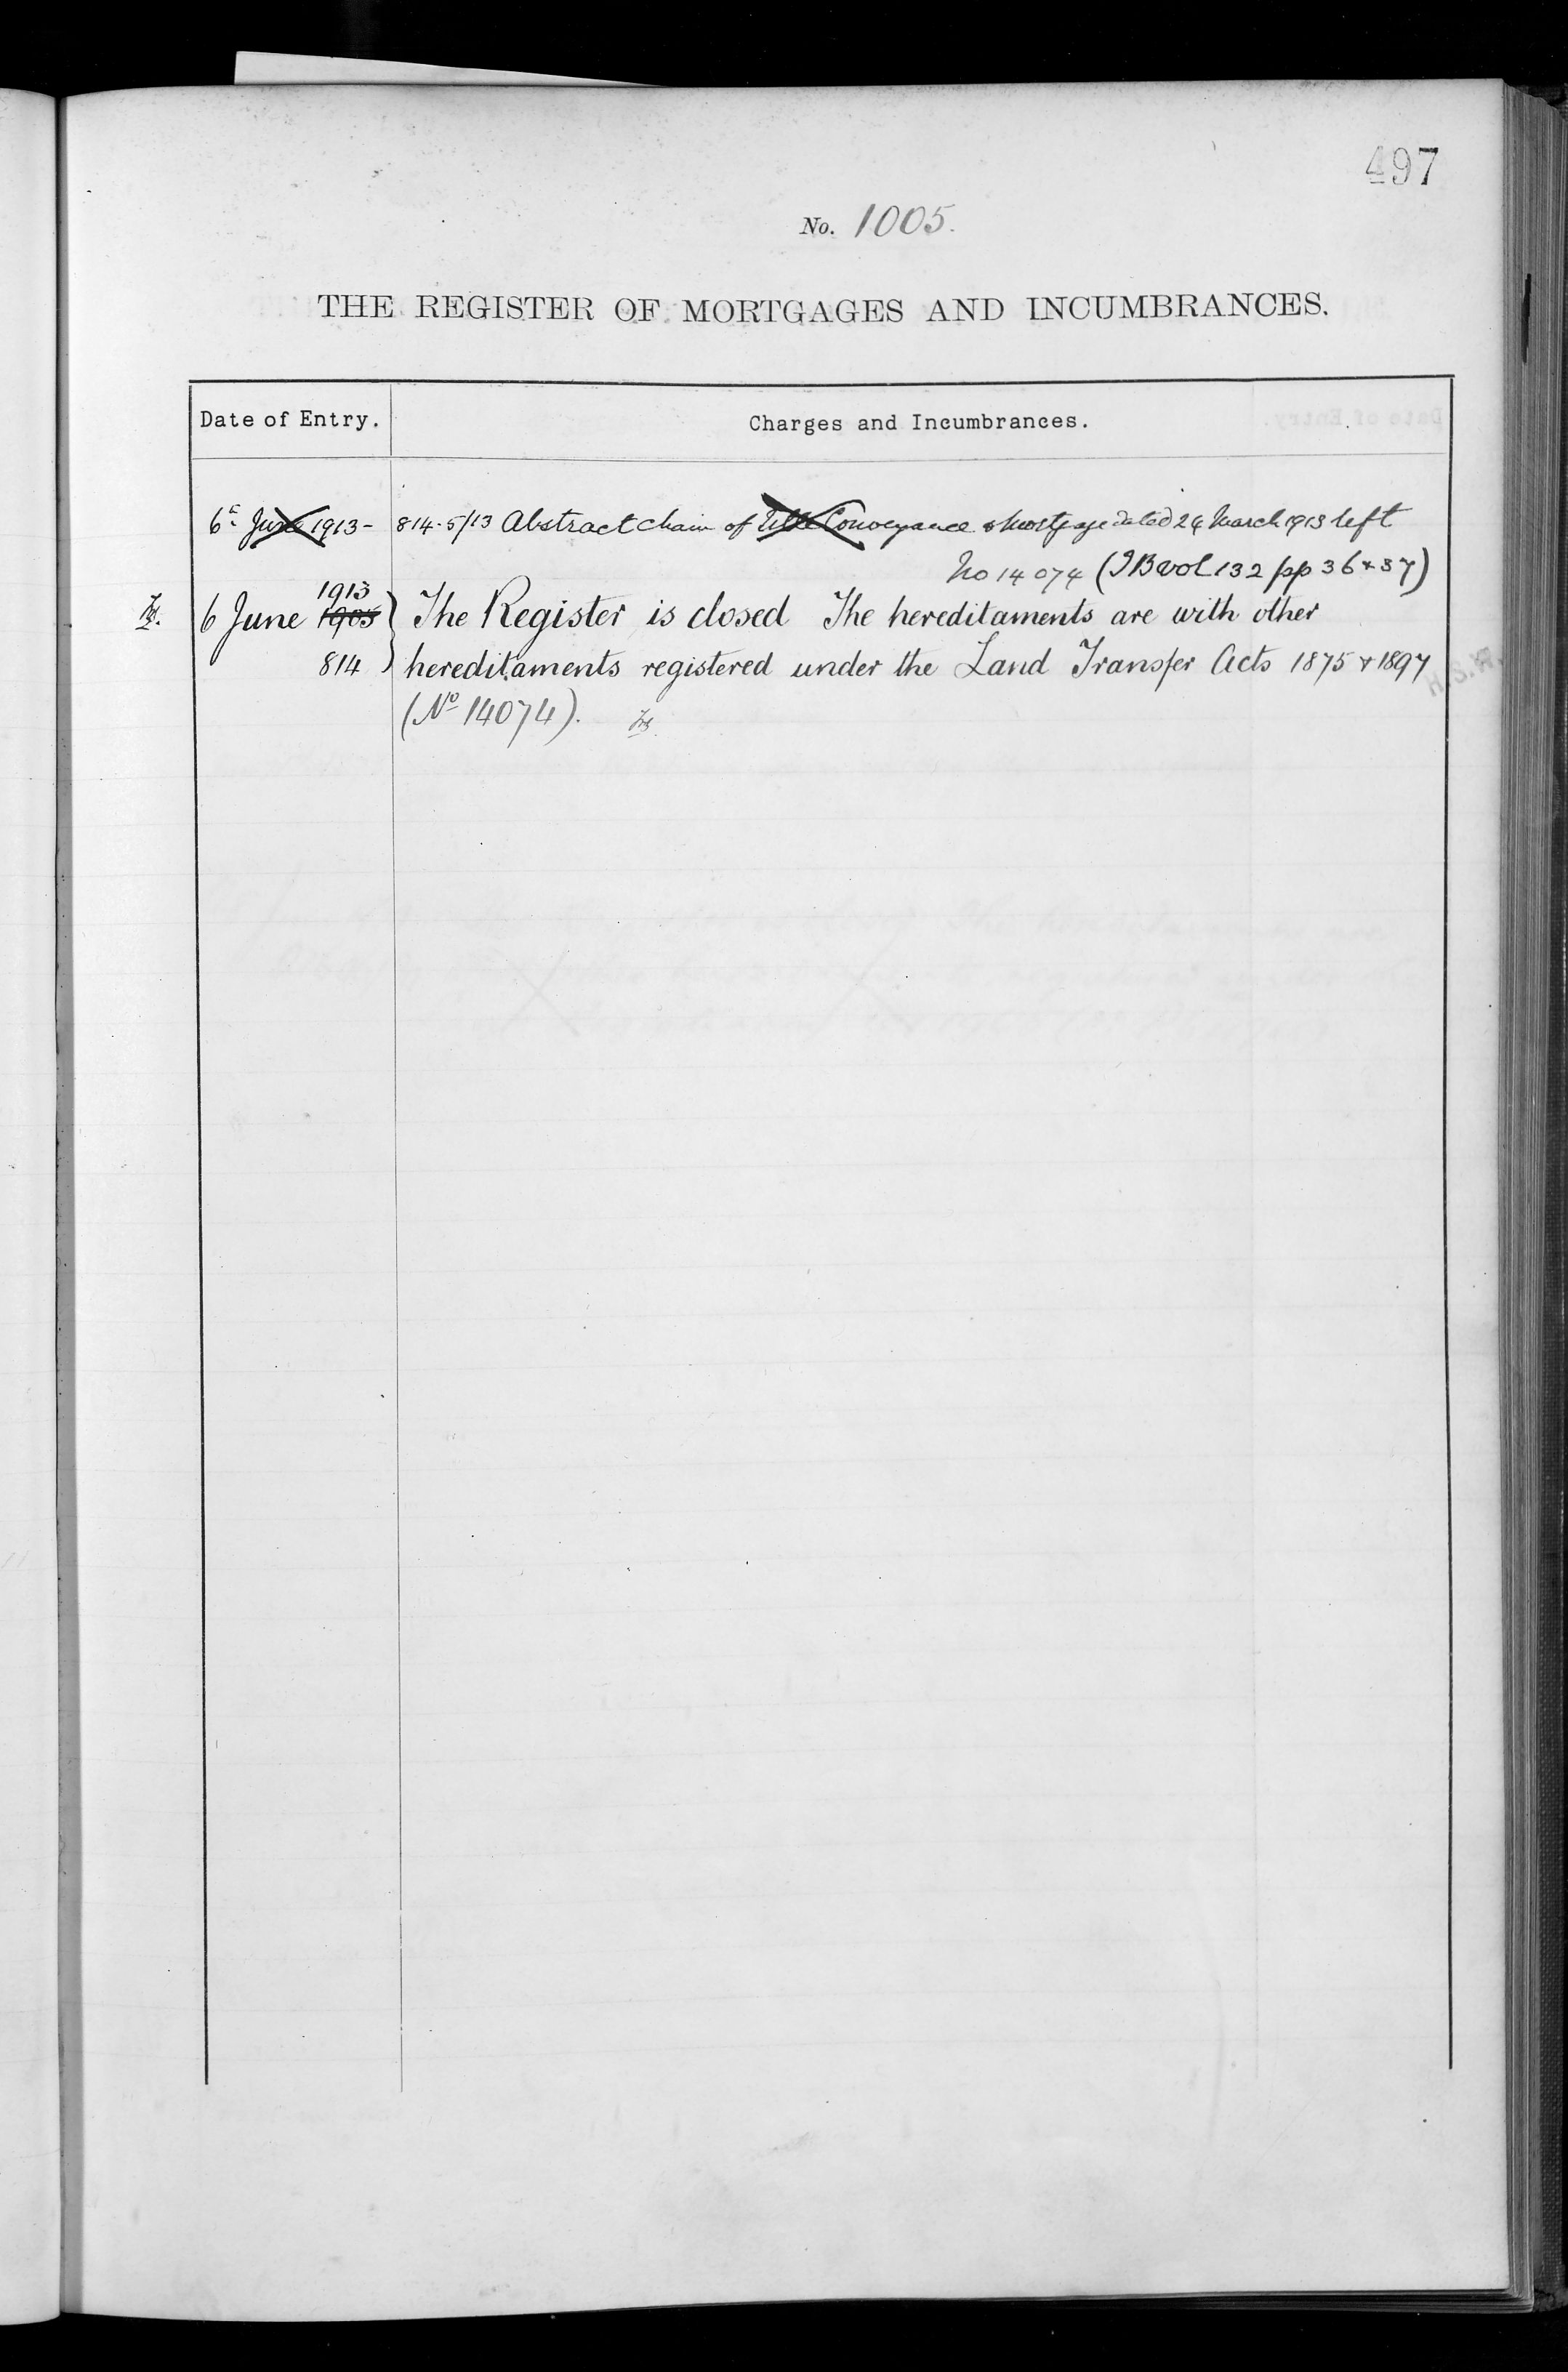 497
No. 1005.
THE REGISTER OF MORTGAGES AND INCUMBRANCES.
Date of Entry. Charges and Incumbrances.
6th June 1913 - 814.5/13 Abstract chain of title Conveyance & Mortgage dated 24 March 1913 left
No 14074 (IB vol 132 pp 36 + 37)
1913
6 June 1905 The Register is closed The hereditaments are with other
814 hereditaments registered under the Land Transfer Acts 1875 & 1897
(No 14074).